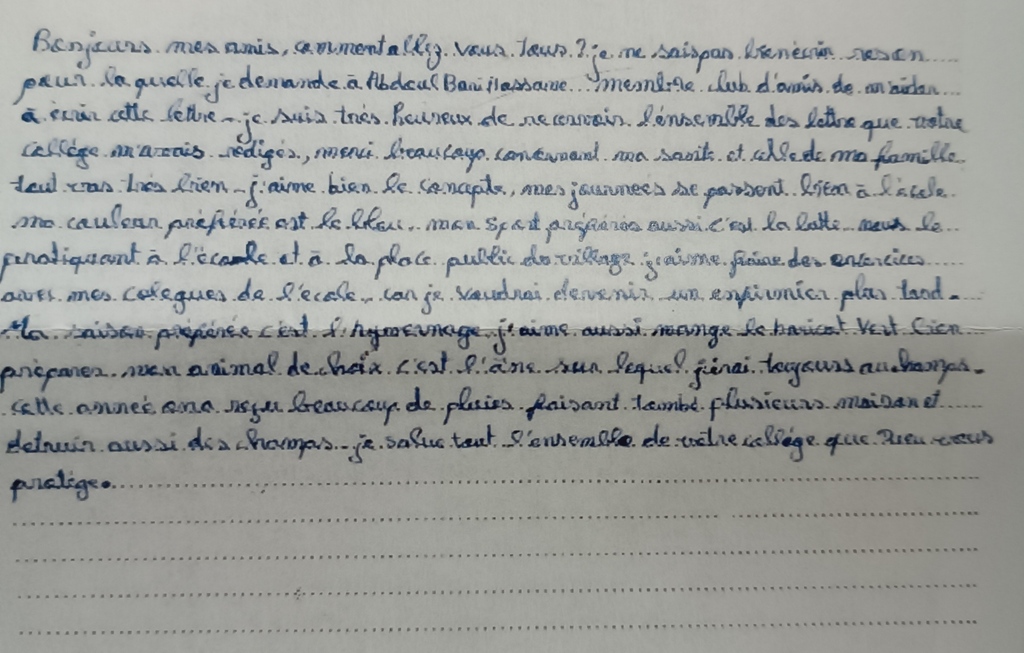 Bonjours mes amis, comment allez vous tous ? je ne sais pas bien écrir reson
pour la quelle je demande à Abdoul Bari Hassane membre club d'amis de m'aider
à écrir cette lettre - je suis très heureux de recevoir l'ensemble des lettre que votre
collège m'avais rédigés, merci beaucoup concernant ma santé et celle de ma famille
tout vas très bien - j'aime bien le concepte, mes journées se passent bien à l'école
ma couleur préférée est le bleu. mon sport préférée aussi c'est la lutte nous le
pratiquant à l'école et à la place public du village j'aime faire des exercices
avec mes colegues de l'école, car je voudrai devenir un enfirmier plus tard.
Ma saison préférée c'est l'hyvernage j'aime aussi mange le haricot vert bien
prépares mon animal de choix c'est l'âne sur lequel j'irai toujours au champs.
cette année ona reçu beaucoup de pluies faisant tombé plusieurs maison et
detruir aussi des champs - je salue tout l'ensemble de vôtre collège que Dieu vous
protége.